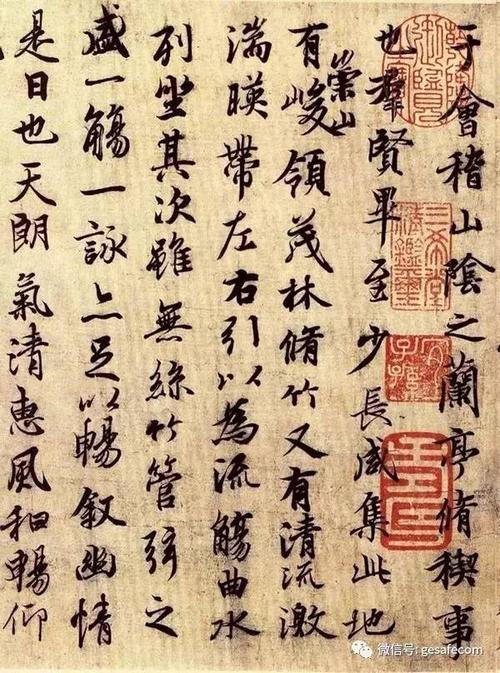 于會稽山陰之蘭亭脩稧事
也羣賢畢至少長咸集此地
有崇山峻領茂林脩竹又有清流激
湍暎帶左右引以為流觴曲水
列坐其次雖無絲竹管弦之
盛一觴一詠亦足以暢叙幽情
是日也天朗氣清惠風和暢仰
三希堂精鑑璽
宜子孫
微信号: gesafecom